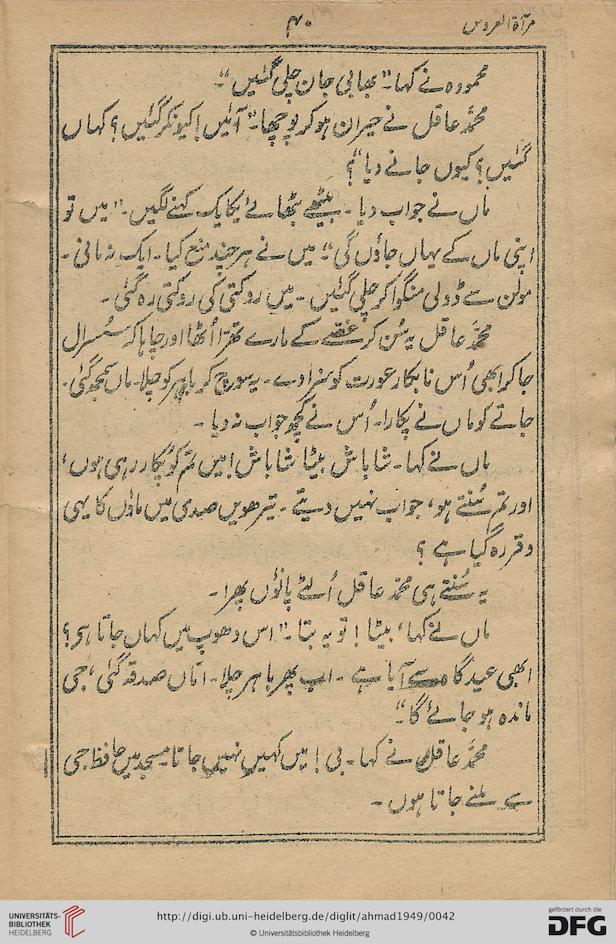 مرآۃ العروس
۴۰
محمودہ نے کہا۔ "بھابی جان چلی گئیں"۔
محمّد عاقل نے حیران ہو کر پوچھا۔ "آئیں! کیونکر گئیں؟ کہاں
گئیں؟ کیوں جانے دیا"؟
ماں نے جواب دیا۔ بیٹھے بٹھائے یکایک کہنے لگیں۔ "میں تو
اپنی ماں کے یہاں جاؤں گی"۔ میں نے ہر چند منع کیا۔ ایک نہ مانی۔
مولن سے ڈولی منگوا کر چلی گئیں۔ میں روکتی کی روکتی رہ گئی۔
محمّد عاقل یہ سُن کر غصّے کے مارے تھرّا اُٹھا اور چاہا کہ سُسرال
جا کر ابھی اُس نابکار عورت کو سزا دے۔ یہ سوچ کر باہر کو چلا۔ ماں سمجھ گئی۔
جاتے کو ماں نے پکارا۔ اُس نے کچھ جواب نہ دیا۔
ماں نے کہا۔ شاباش بیٹا شاباش! میں تم کو پکار رہی ہوں،
اور تم سُنتے ہو، جواب نہیں دیتے۔ تیرھویں صدی میں ماؤں کا یہی
وقر رہ گیا ہے؟
یہ سُنتے ہی محمّد عاقل اُلٹے پانوں پھرا۔
ماں نے کہا، بیٹا! تو یہ بتا۔ "اس دھوپ میں کہاں جاتا ہے؟
ابھی عیدگاہ سے آیا ہے۔ اب پھر باہر چلا۔ امّاں صدقہ گئی، جی
ماندہ ہو جائے گا"۔
محمّد عاقل نے کہا۔ بی! میں کہیں نہیں جاتا مسجد میں حافظ جی
سے ملنے جاتا ہوں۔
UNIVERSITÄTS-
BIBLIOTHEK
HEIDELBERG
http://digi.ub.uni-heidelberg.de/diglit/ahmad1949/0042
© Universitätsbibliothek Heidelberg
gefördert durch die
DFG